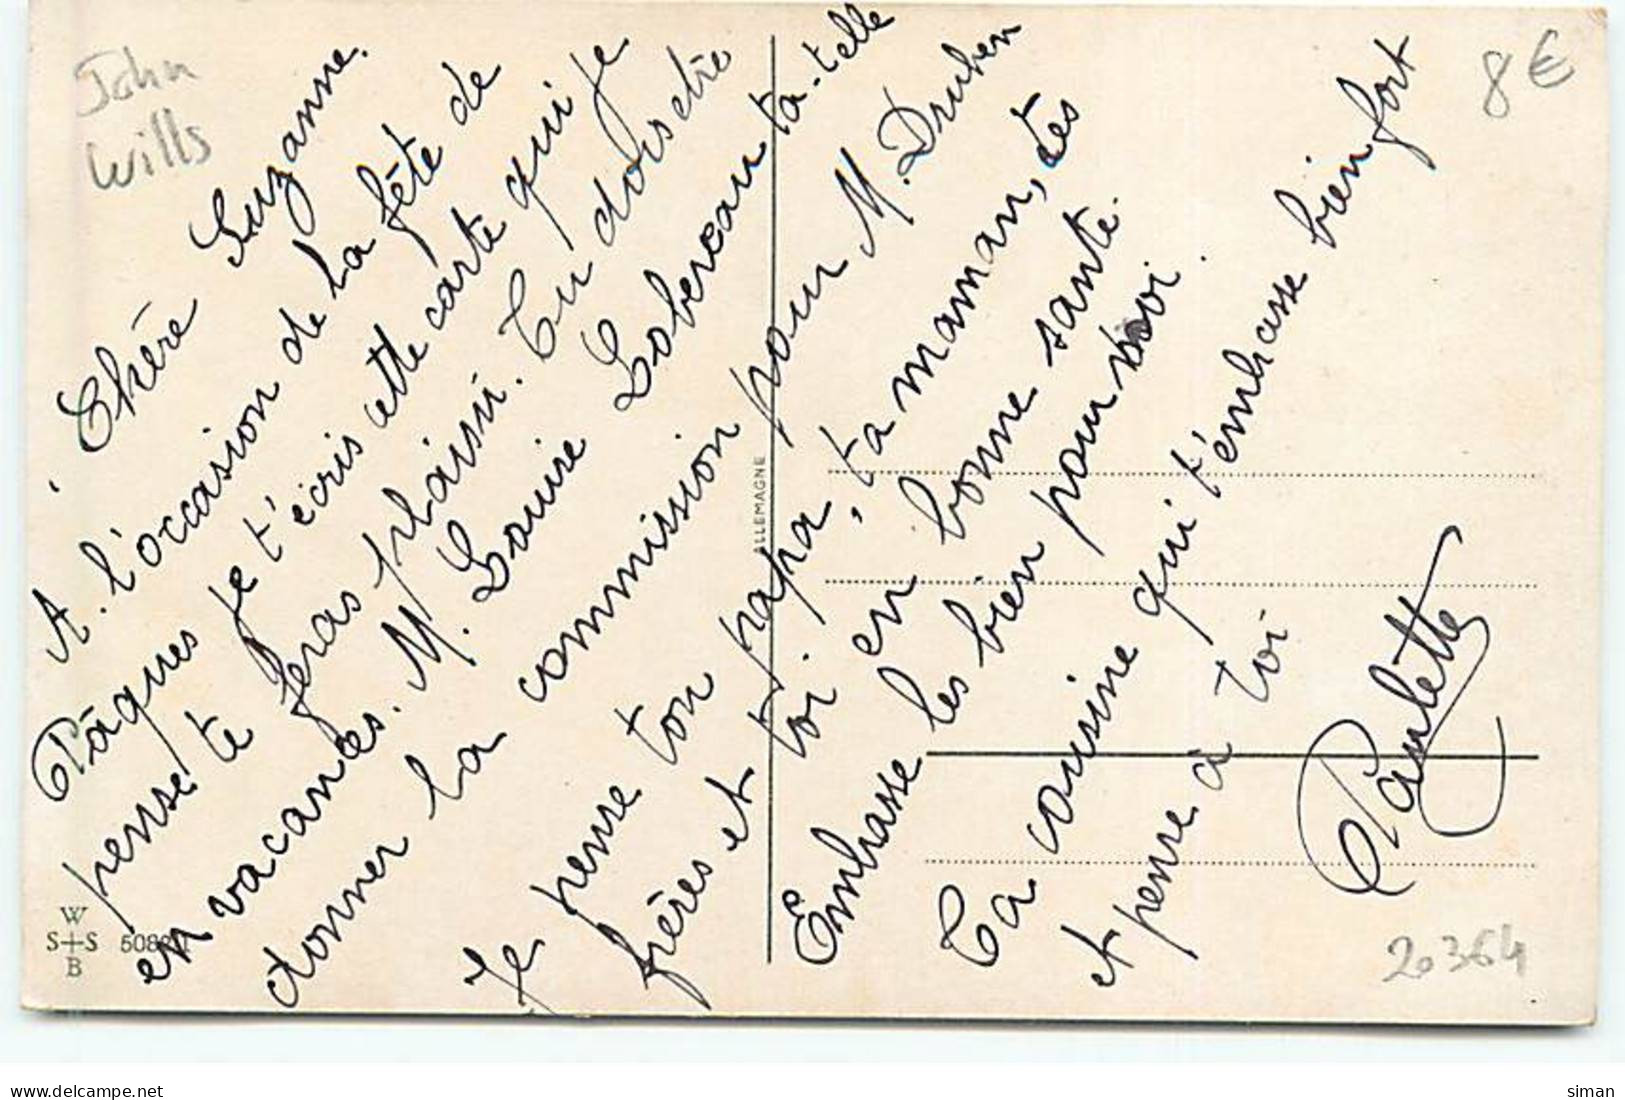 John
Wills
8 €
Chère Suzanne.
A l'occasion de la fête de
Pâques je t'écris cette carte qui je
pense te feras plaisir. Tu dois etre
en vacances. M. Louise Lobereau ta-telle
donner la commission pour M. Druhen
Je pense ton papa, ta maman, tes
frères et toi en bonne santé.
Embrasse les bien pour moi.
Ta cousine qui t'embrasse bien fort
et pense à toi
Paulette
ALLEMAGNE
W
S+S
B
20364
delcampe.net
siman